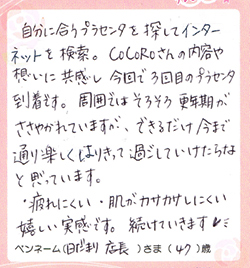 自分に合うプラセンタを探してインター
ネットを検索。COCOROさんの内容や
想いに共感し今回で3回目のプラセンタ
到着です。周囲ではそろそろ更年期が
ささやかれていますが、できるだけ今まで
通り楽しくはりきって過ごしていけたらな
と思っています。
・疲れにくい・肌がカサカサしにくい
嬉しい実感です。続けていきます
ペンネーム(日だまり 店長 )さま(47)歳